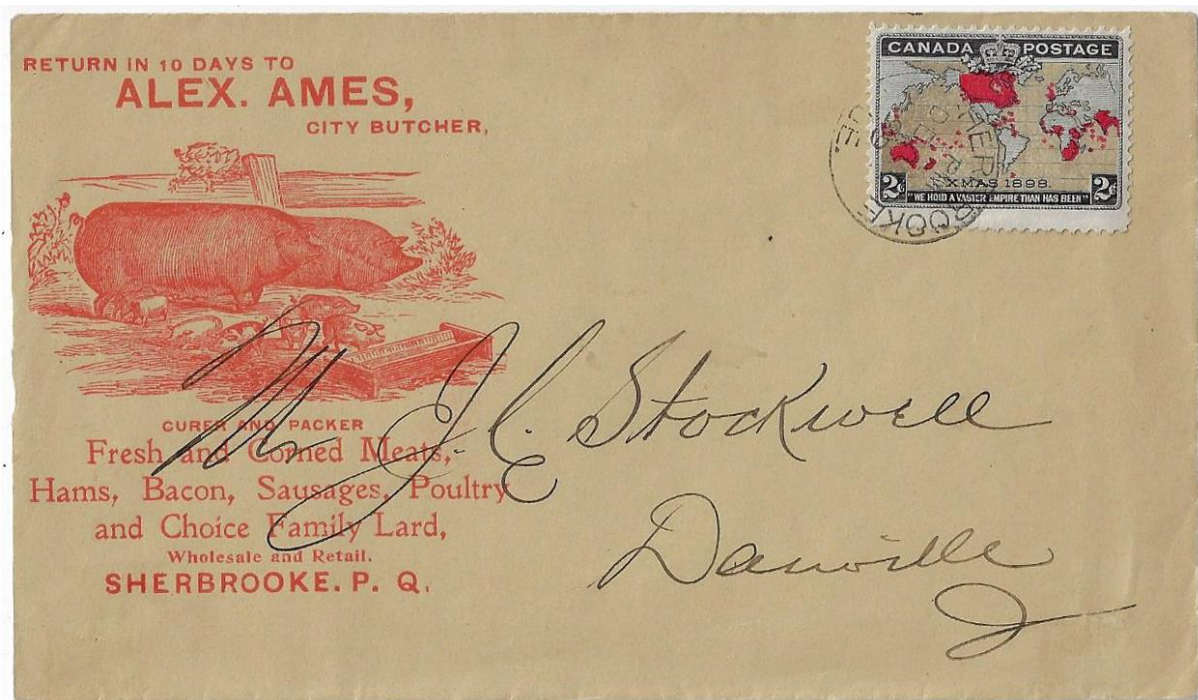 RETURN IN 10 DAYS TO
ALEX. AMES,
CITY BUTCHER,
CURER AND PACKER
Fresh and Corned Meats,
Hams, Bacon, Sausages, Poultry
and Choice Family Lard,
Wholesale and Retail.
SHERBROOKE. P. Q.
CANADA POSTAGE
XMAS 1898.
2¢ 2¢
"WE HOLD A VASTER EMPIRE THAN HAS BEEN"
SHERBROOKE
Mr J. C. Stockwell
Danville